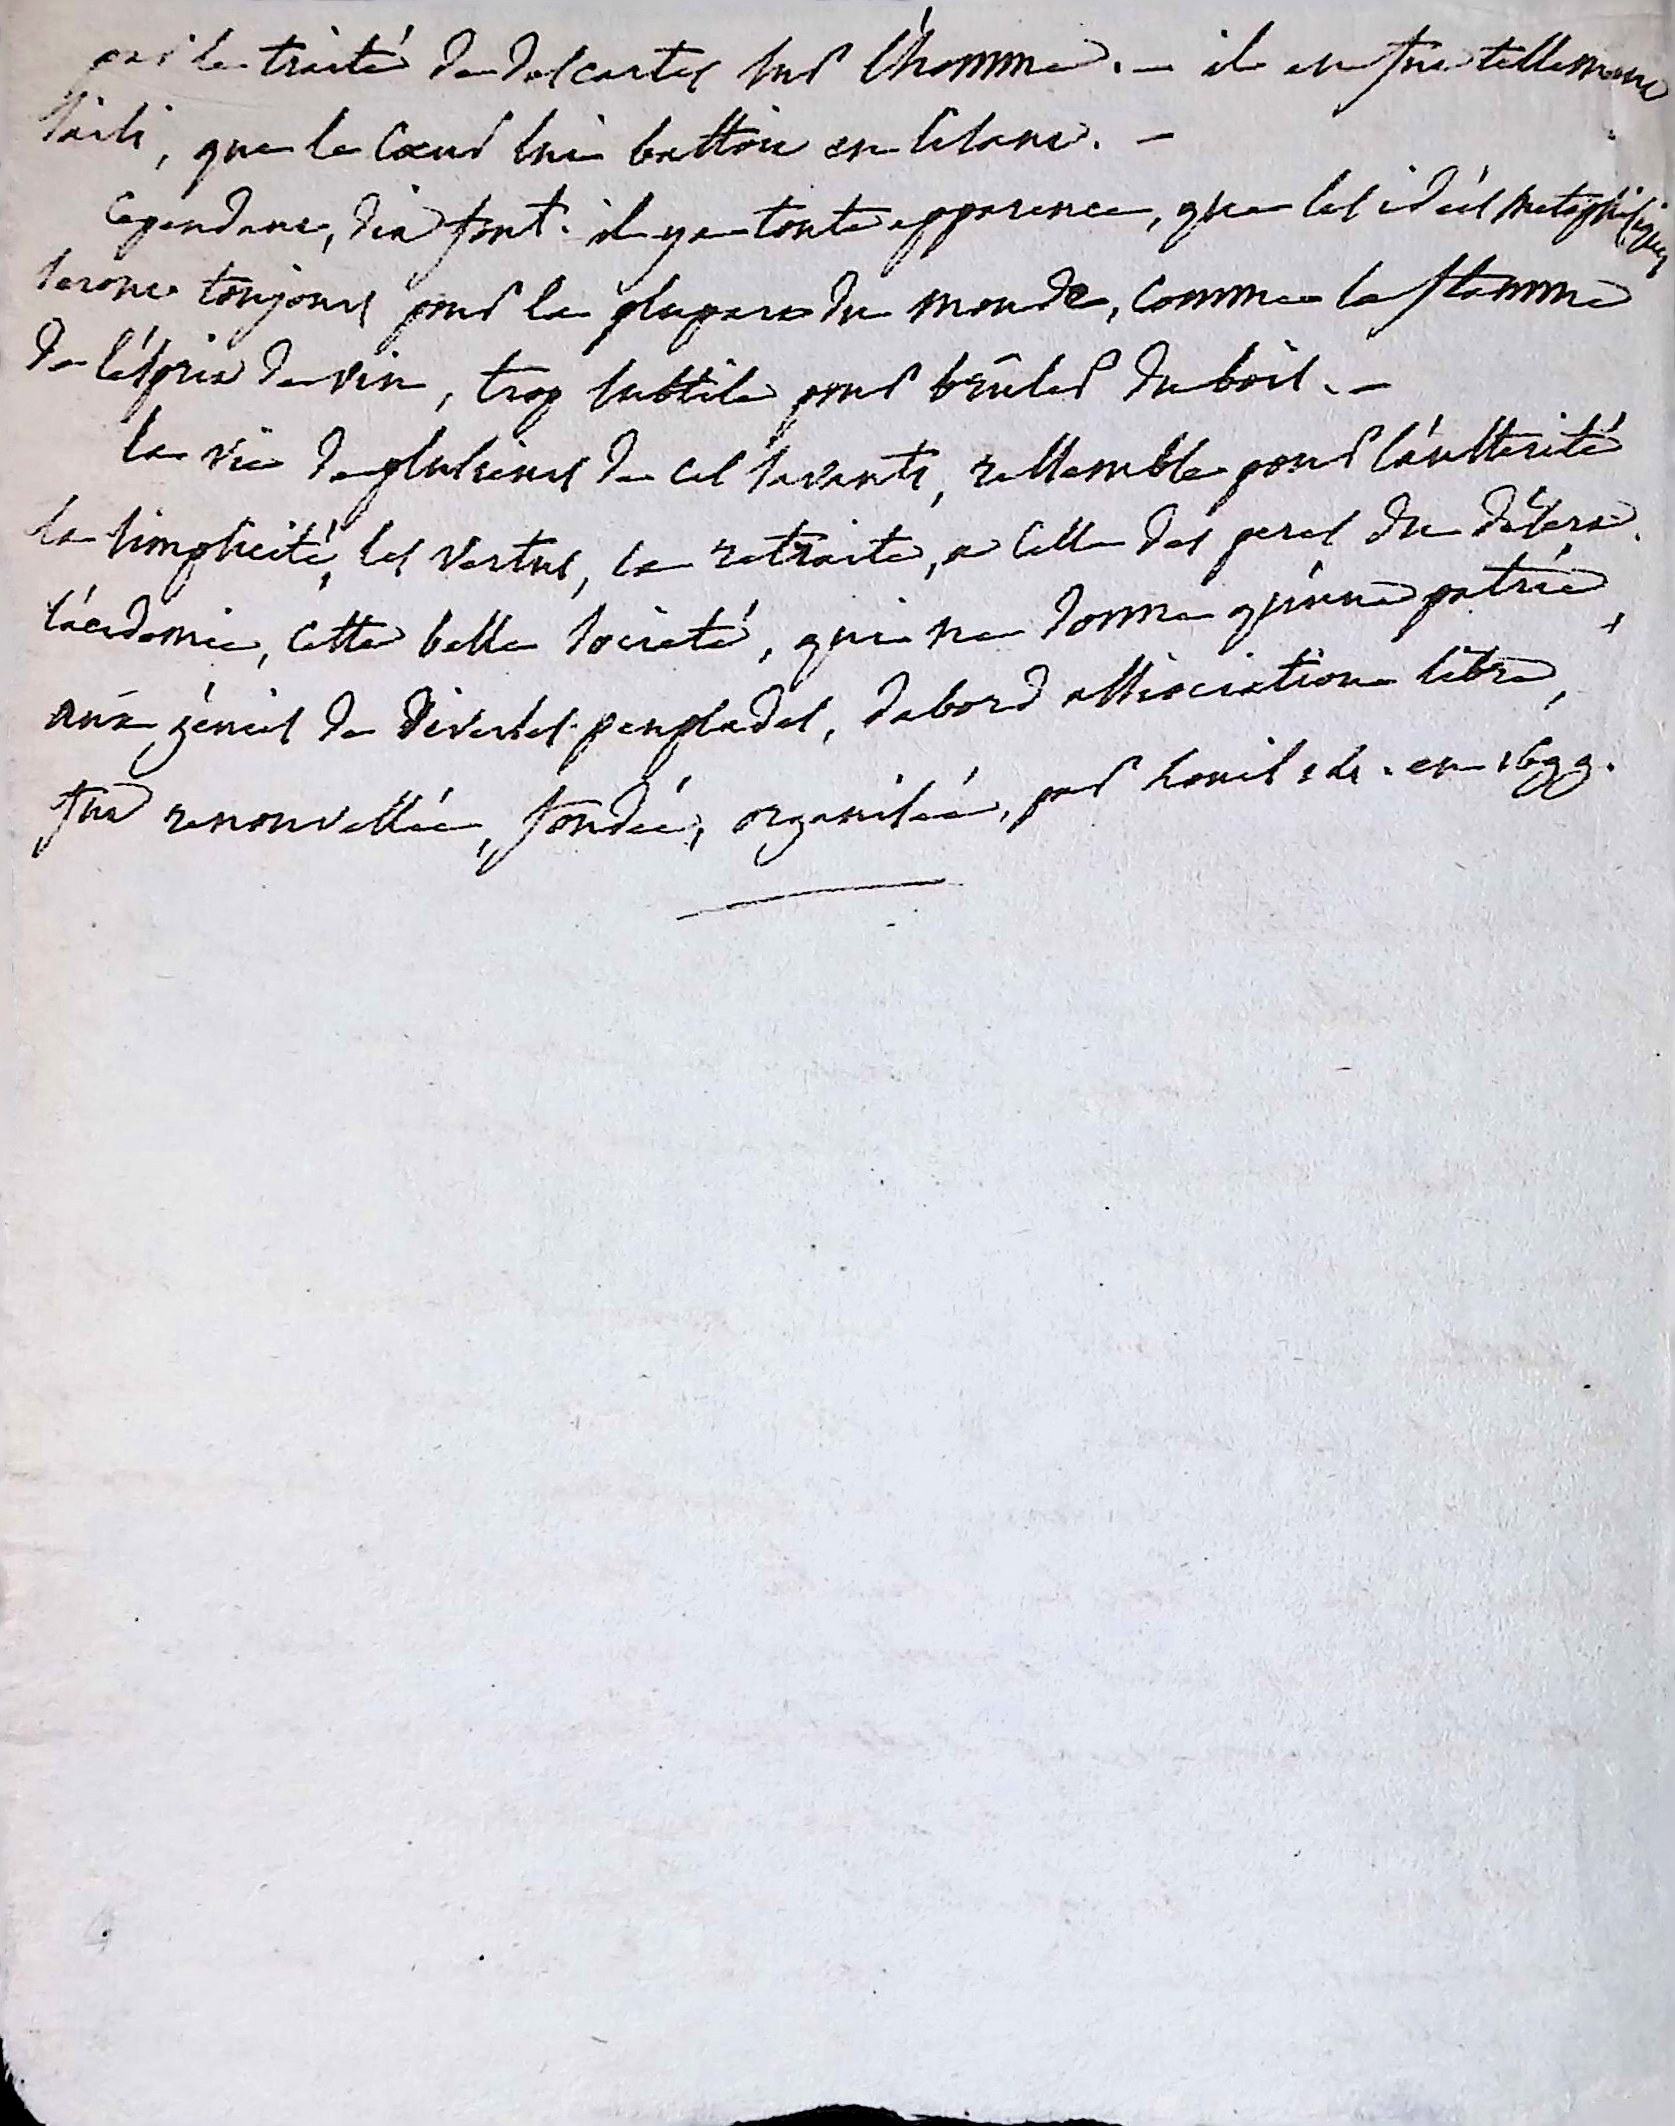 par le traité de descartes sur l'homme. — il en fut tellement
saisi, que le cœur lui battoit en lisant. —
Cependant, dit font. il y a toute apparence, que les idées metaphisiques
seront toujours pour la plupart du monde, comme la flamme
de l'ésprit de vin, trop subtile pour brûler du bois. —
la vie de plusieurs de ces savants, ressemble pour l'austerité
la simplicité, les vertus, la retraite, a celle des peres du désert.
l'académie, cette belle societé, qui ne donne qu'une patrie,
aux génies de diverses peuplades, dabord association libre,
fut renouvellée, fondée, organisée, par Louis 14. en 1699.